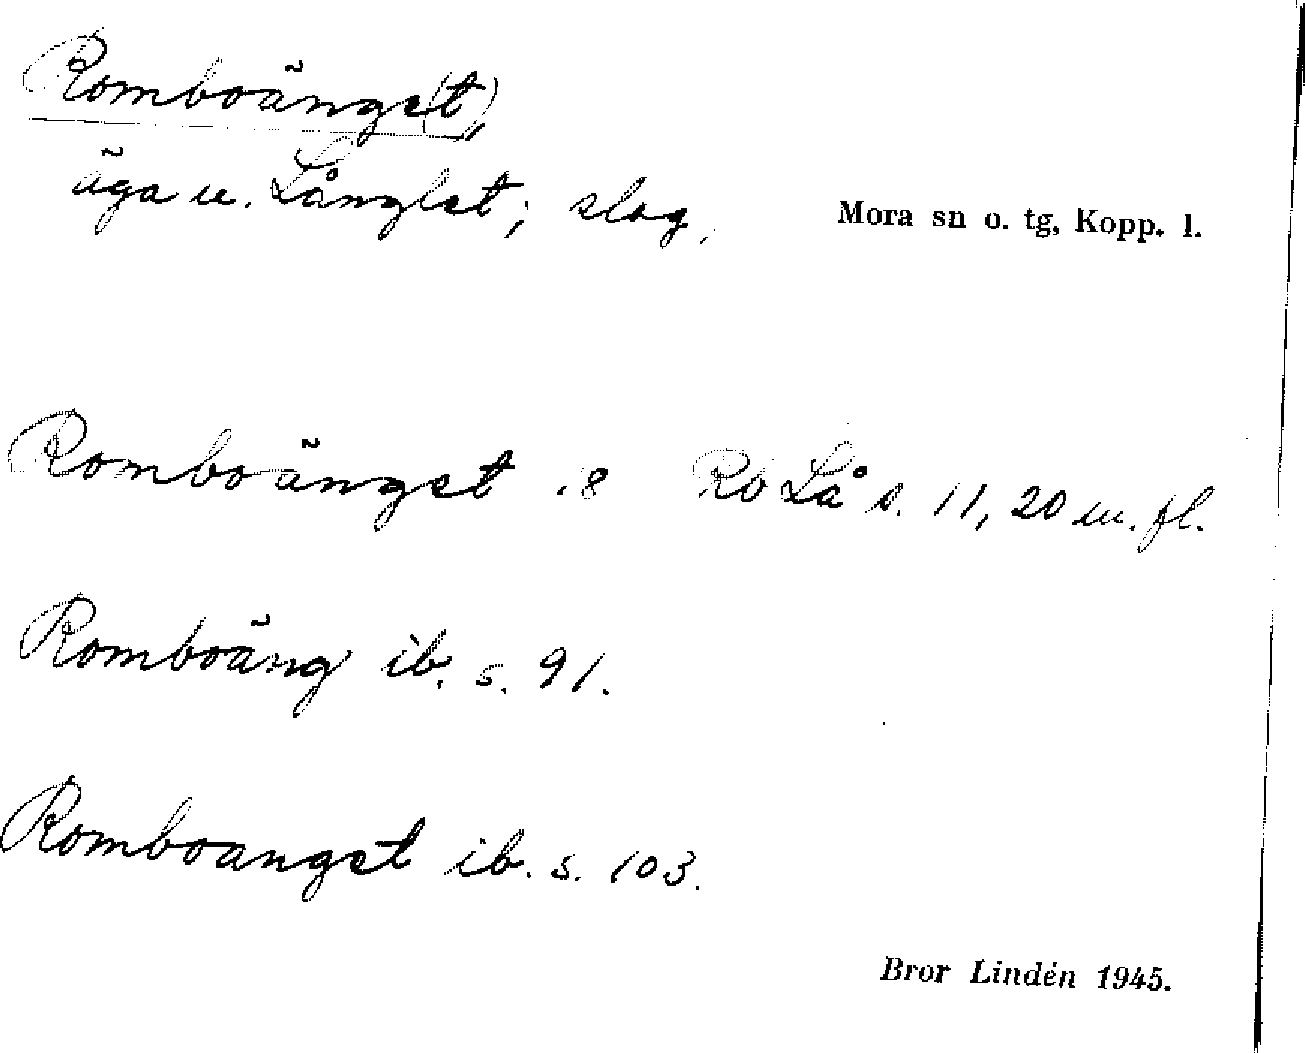 Romboänget(,)
äga u. Långlet; slog.
Mora sn o. tg, Kopp. l.
Romboänget i8 Rb Lå s. 11, 20 m. fl.
Romboäng ib. s. 91.
Romboanget ib. s. 103.
Bror Lindén 1945.